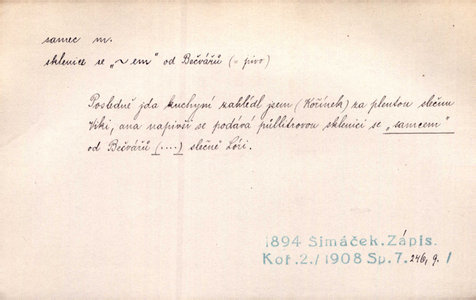 samec m.
sklenice se „~em" od Bečvářů (= pivo)
Posledně jda kuchyní zahlédl jsem (Kořínek) za plentou slečnu
Viki, ana napivši se podává půllitrovou sklenici se „samcem"
od Bečvářů (....) slečně Lóri.
1894 Šimáček. Zápis.
Koř. 2./1908 Sp. 7. 246, 9. /